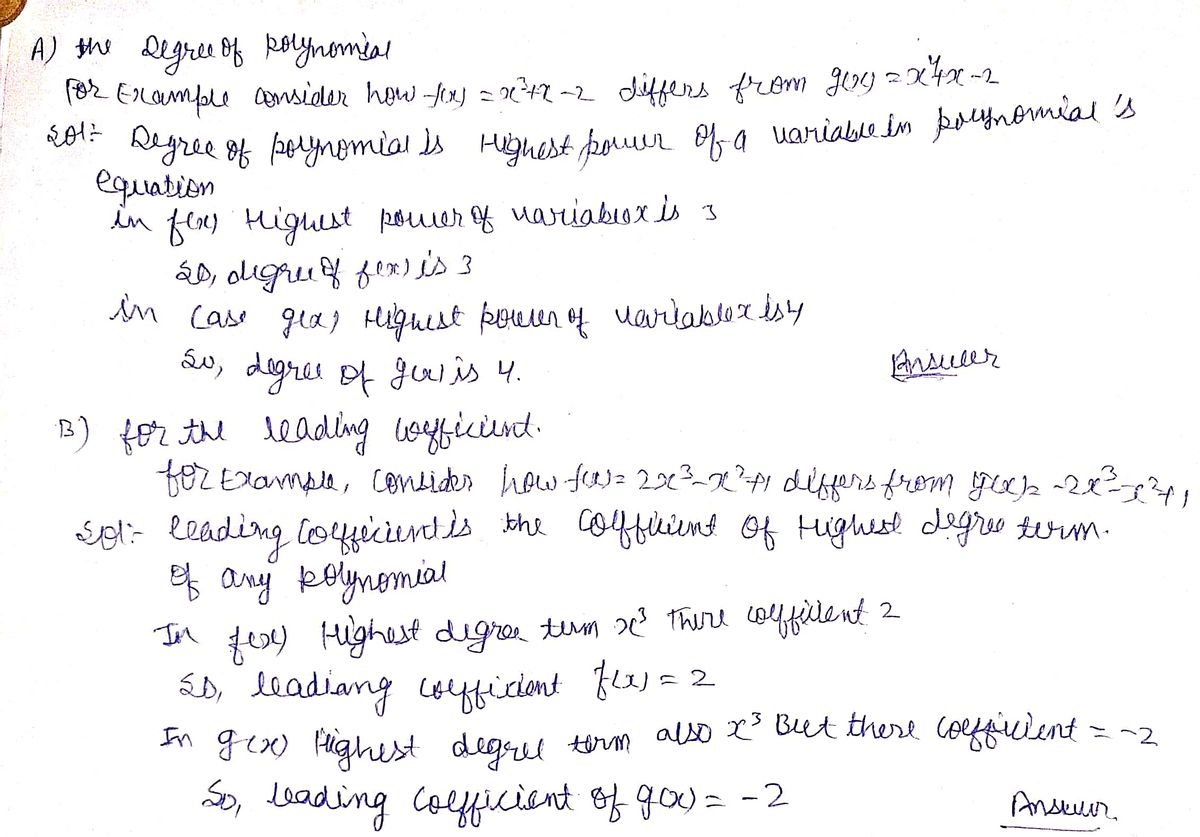 A) the Degree of polynomial
For Example consider how f(x) = x³+x-2 differs from g(x) = x⁴+x-2
Sol:- Degree of polynomial is Highest power of a variable in polynomial's
equation
in f(x) Highest power of variable x is 3
So, degree of f(x) is 3
in Case g(x) Highest power of variable x is 4
So, degree of g(x) is 4.
Answer
B) for the leading coefficient.
for Example, Consider how f(x) = 2x³-x²+1 differs from g(x) = -2x³-x²+1
Sol:- leading Coefficient is the Coefficient of Highest degree term.
of any polynomial
In f(x) Highest degree term x³ There coefficient 2
So, leadiang coefficient f(x) = 2
In g(x) Highest degree term also x³ But there coefficient = -2
So, leading Coefficient of g(x) = -2
Answer